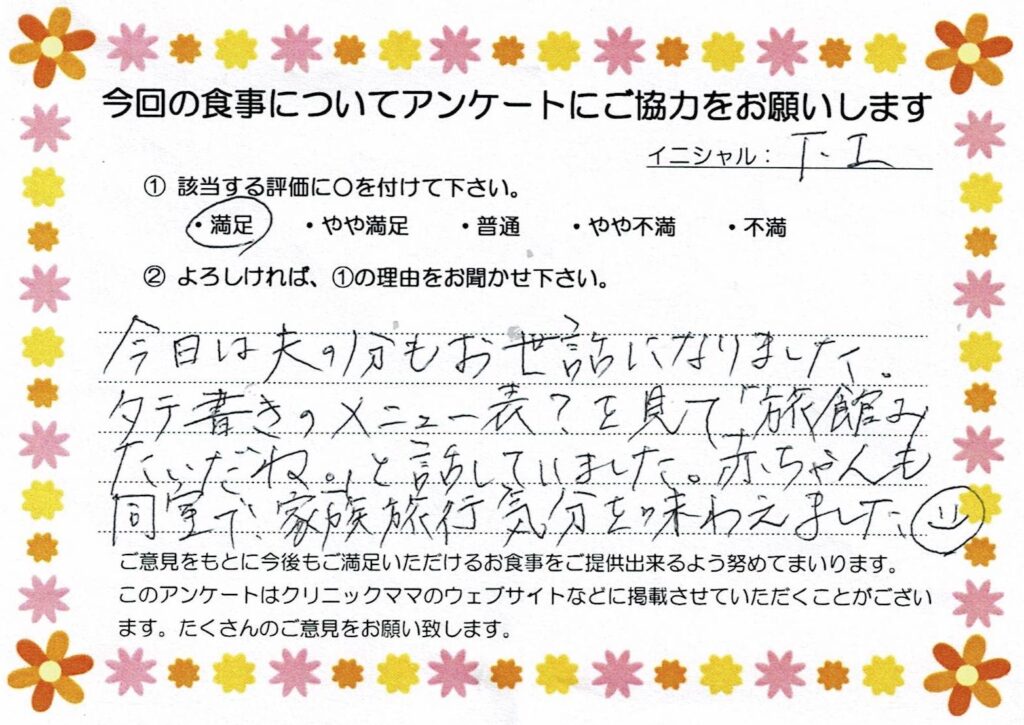 今回の食事についてアンケートにご協力をお願いします
イニシャル： T.I
① 該当する評価に〇を付けて下さい。
・満足 ・やや満足 ・普通 ・やや不満 ・不満
② よろしければ、①の理由をお聞かせ下さい。
今日は夫の分もお世話になりました。
タテ書きのメニュー表？を見て「旅館み
たいだね。」と話していました。赤ちゃんも
同室で、家族旅行気分を味わえました
ご意見をもとに今後もご満足いただけるお食事をご提供出来るよう努めてまいります。
このアンケートはクリニックママのウェブサイトなどに掲載させていただくことがござい
ます。たくさんのご意見をお願い致します。